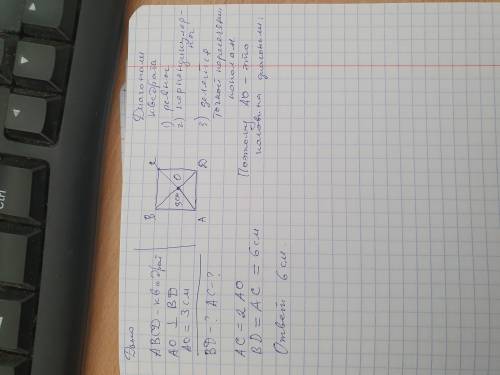 Дано
ABCD - квадрат
AO ⊥ BD
AO = 3 см
BD - ? AC - ?
B
C
3см
O
A
D
Диагонали
квадрата
1) равны
2) перпендикуляр-
ны
3) делятся
точкой пересечения
пополам
AC = 2 AO
BD = AC = 6 см
Поэтому AO - это
половина диагонали.
Ответ 6 см